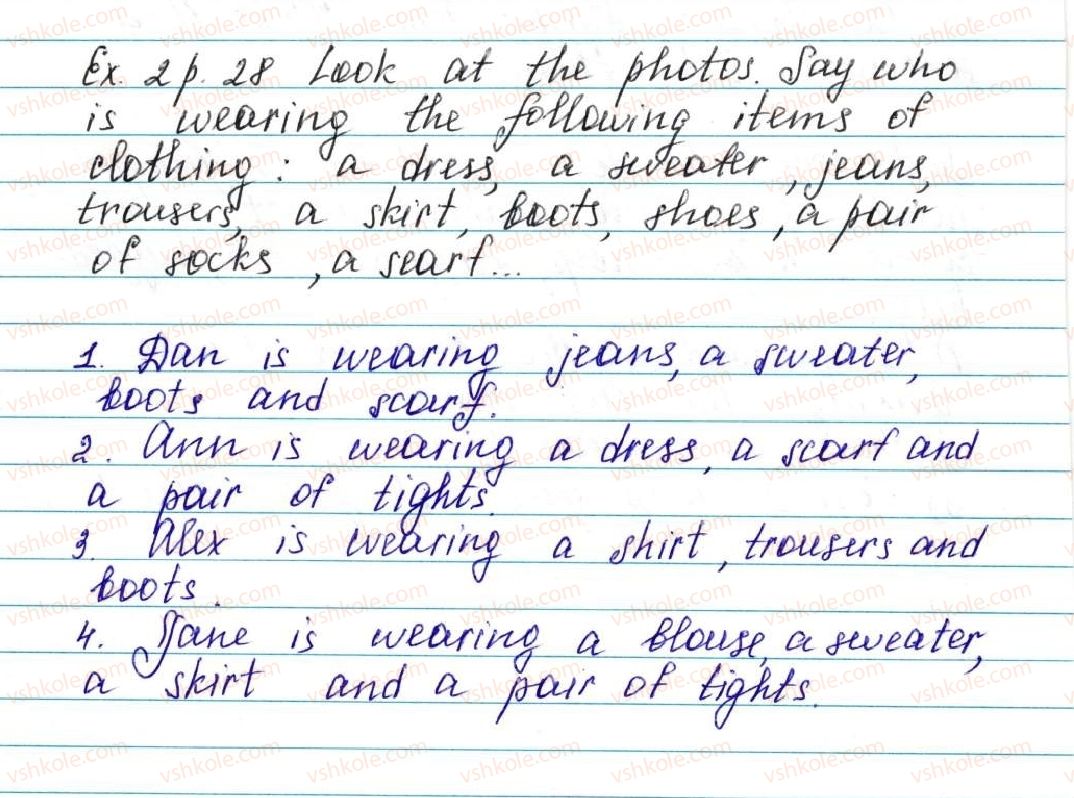 Ex. 2 p. 28 Look at the photos. Say who
is wearing the following items of
clothing: a dress, a sweater, jeans,
trousers, a skirt, boots, shoes, a pair
of socks, a scarf...
1. Dan is wearing jeans, a sweater,
boots and scarf.
2. Ann is wearing a dress, a scarf and
a pair of tights.
3. Alex is wearing a shirt, trousers and
boots.
4. Jane is wearing a blouse, a sweater,
a skirt and a pair of tights.